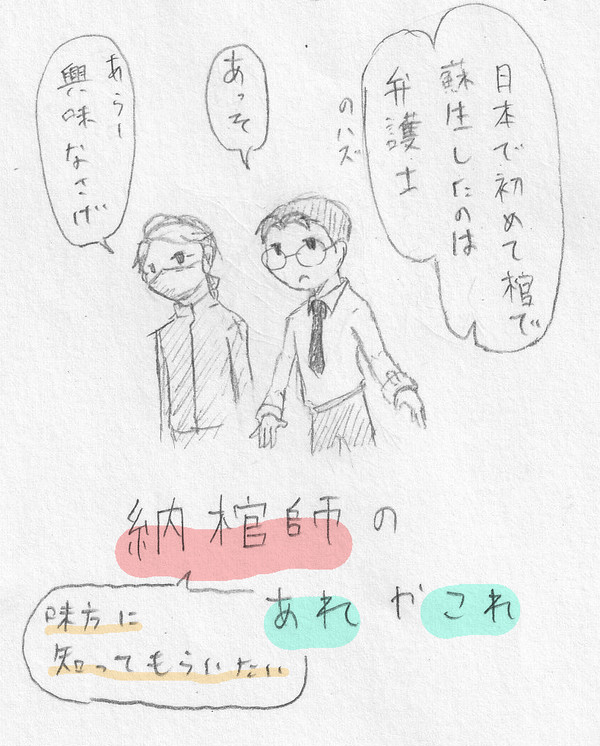 日本で初めて棺で
蘇生したのは
弁護士
のハズ
あっそ
あらー
興味なさげ
納棺師の
あれやこれ
味方に
知ってもらいたい